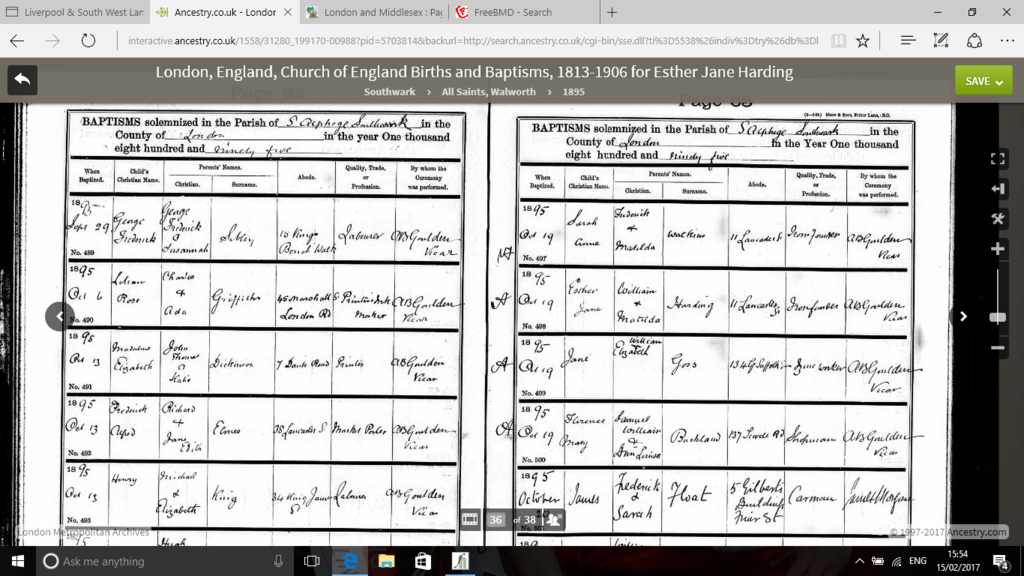 Liverpool & South West Lan
Ancestry.co.uk - London
London and Middlesex : Pa
FreeBMD - Search
interactive.ancestry.co.uk/1558/31280_199170-00988?pid=5703814&backurl=http://search.ancestry.co.uk/cgi-bin/sse.dll?ti%3D5538%26indiv%3Dtry%26db%3D
London, England, Church of England Births and Baptisms, 1813-1906 for Esther Jane Harding
Southwark > All Saints, Walworth > 1895
SAVE
BAPTISMS solemnized in the Parish of S Alphege Southwark in the
County of London in the year One thousand
eight hundred and ninety five
When Baptized. Child's Christian Name. Parents' Names. Christian. Surname. Abode. Quality, Trade, or Profession. By whom the Ceremony was performed.
1895 Sept 29 No. 489 George Fredrick George Fredrick & Susannah Labourer Vicar
1895 Oct 6 No. 490 Lilian Rose Charles & Ada Griffiths London Rd Maker Vicar
1895 Oct 13 No. 491 Elizabeth John Thomas & Dickinson 7 Road Printer Vicar
1895 Oct 13 No. 492 Fredrick Alfred Richard & Jane Edith Elmes 35 Lancaster S Market Porter Vicar
1895 Oct 13 No. 493 Henry Michael & Elizabeth King 34 King James St Labourer Vicar
Hugh
Page 63
BAPTISMS solemnized in the Parish of S Alphege Southwark in the
County of London in the Year One thousand
eight hundred and ninety five
When Baptized. Child's Christian Name. Parents' Names. Christian. Surname. Abode. Quality, Trade, or Profession. By whom the Ceremony was performed.
1895 Oct 19 No. 497 Sarah Anne Frederick & Matilda Watkins 11 Lancaster St Vicar
1895 Oct 19 No. 498 Esther Jane William & Matilda Harding 11 Lancaster St Ironfounder Vicar
1895 Oct 19 No. 499 Jane William Elizabeth Goss 134 Suffolk Zinc worker Vicar
1895 Oct 19 No. 500 Florence Mary Samuel William & Ann Louisa Buckland 137 Rd Shopman Vicar
1895 October James Frederick & Sarah Float 5 Gilberts Buildings Friar St Carman
36 of 38
London Metropolitan Archives
© 1997-2017 Ancestry.com
Ask me anything
ENG
15:54
15/02/2017
4